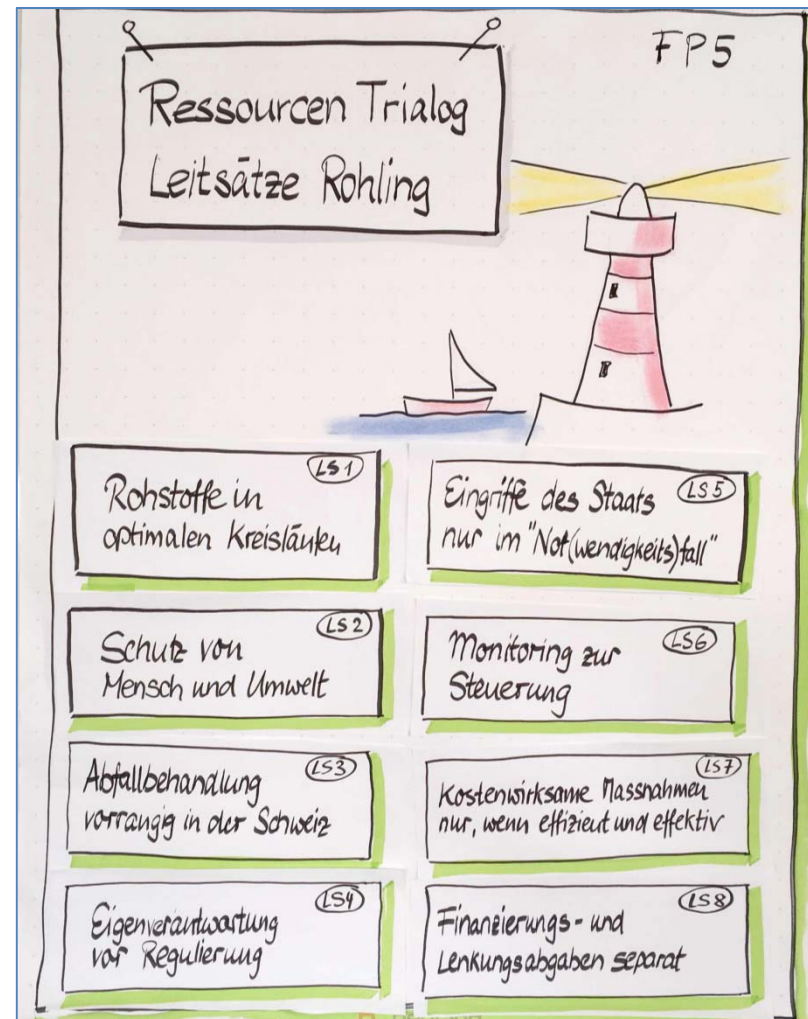 FP5
Ressourcen Trialog
Leitsätze Rohling
LS1
Rohstoffe in
optimalen Kreisläufen
LS2
Schutz von
Mensch und Umwelt
LS3
Abfallbehandlung
vorrangig in der Schweiz
LS4
Eigenverantwortung
vor Regulierung
LS5
Eingriffe des Staats
nur im "Not(wendigkeits)fall"
LS6
Monitoring zur
Steuerung
LS7
Kostenwirksame Massnahmen
nur, wenn effizient und effektiv
LS8
Finanzierungs- und
Lenkungsabgaben separat